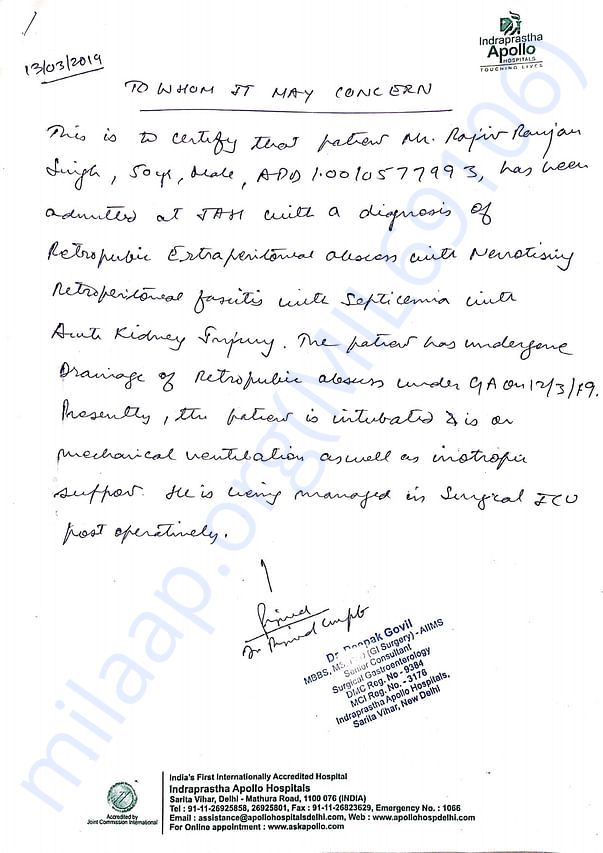 Indraprastha
Apollo
HOSPITALS
TOUCHING LIVES
13/03/2019
TO WHOM IT MAY CONCERN
This is to certify that patient Mr. Rajiv Ranjan
Singh, 50yr, Male, APD1.0010577993, has been
admitted at IAH with a diagnosis of
Retropubic Extraperitoneal abscess with Necrotising
Retroperitoneal fasciitis with Septicemia with
Acute Kidney Injury. The patient has undergone
Drainage of Retropubic abscess under GA on 12/3/19.
Presently, the patient is intubated & is on
mechanical ventilation as well as inotropic
support. He is being managed in Surgical ICU
post operatively.
Dr
Dr. Deepak Govil
MBBS, MS, (GI Surgery) - AIIMS
Senior Consultant
Surgical Gastroenterology
DMC Reg. No - 9384
MCI Reg. No. - 3176
Indraprastha Apollo Hospitals,
Sarita Vihar, New Delhi
milaap.org(MIL691106)
Accredited by
Joint Commission International
India's First Internationally Accredited Hospital
Indraprastha Apollo Hospitals
Sarita Vihar, Delhi - Mathura Road, 1100 076 (INDIA)
Tel : 91-11-26925858, 26925801, Fax : 91-11-26823629, Emergency No. : 1066
Email : assistance@apollohospitalsdelhi.com, Web : www.apollohospdelhi.com
For Online appointment : www.askapollo.com